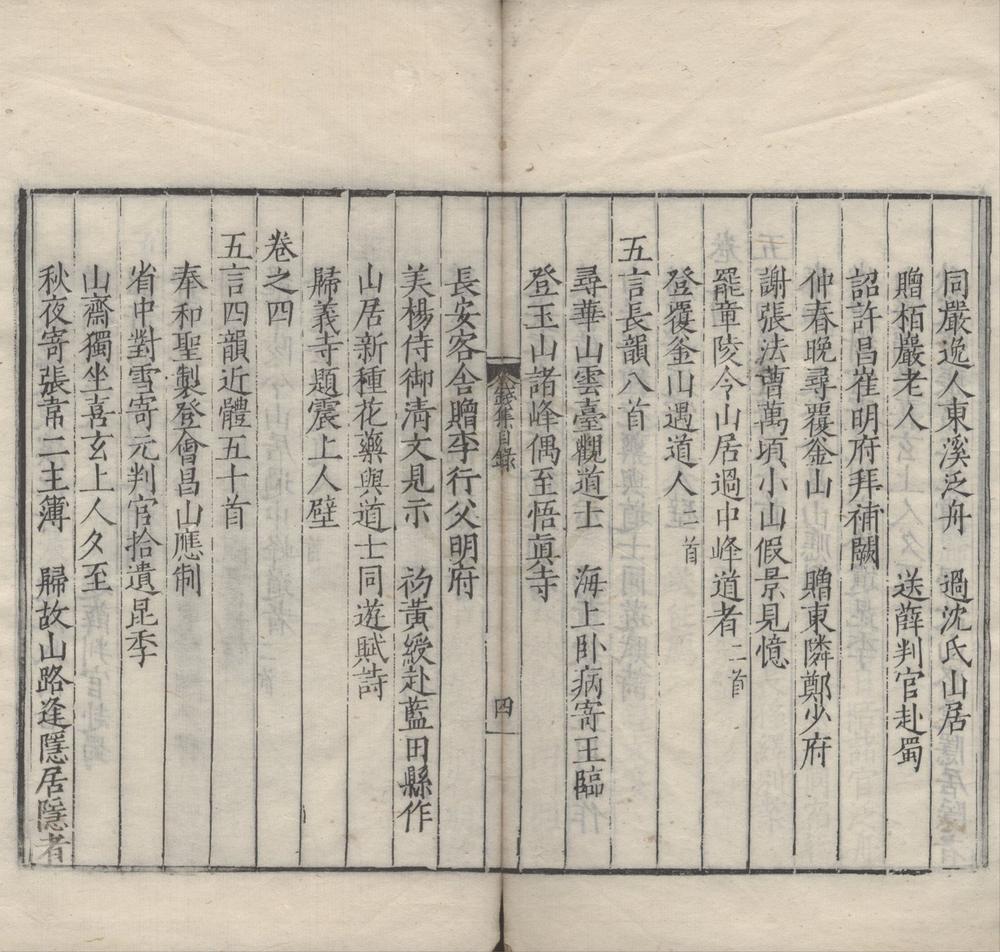 同嚴逸人東溪泛舟　過沈氏山居
贈栢巖老人　送薛判官赴蜀
詔許昌崔明府拜補闕
仲春晚尋覆釡山　贈東隣鄭少府
謝張法曹萬頃小山假景見憶
罷章陵令山居過中峰道者二首
登覆釡山遇道人二首
五言長韻八首
尋華山雲臺觀道士　海上卧病寄王臨
登玉山諸峰偶至悟眞寺
集目錄
四
長安客舍贈李行父明府
美楊侍御淸文見示　初黄綬赴藍田縣作
山居新種花藥與道士同遊賦詩
歸義寺題震上人壁
卷之四
五言四韻近體五十首
奉和聖製登會昌山應制
省中對雪寄元判官拾遺昆季
山齋獨坐喜玄上人夕至
秋夜寄張韋二主簿　歸故山路逢隱居隱者